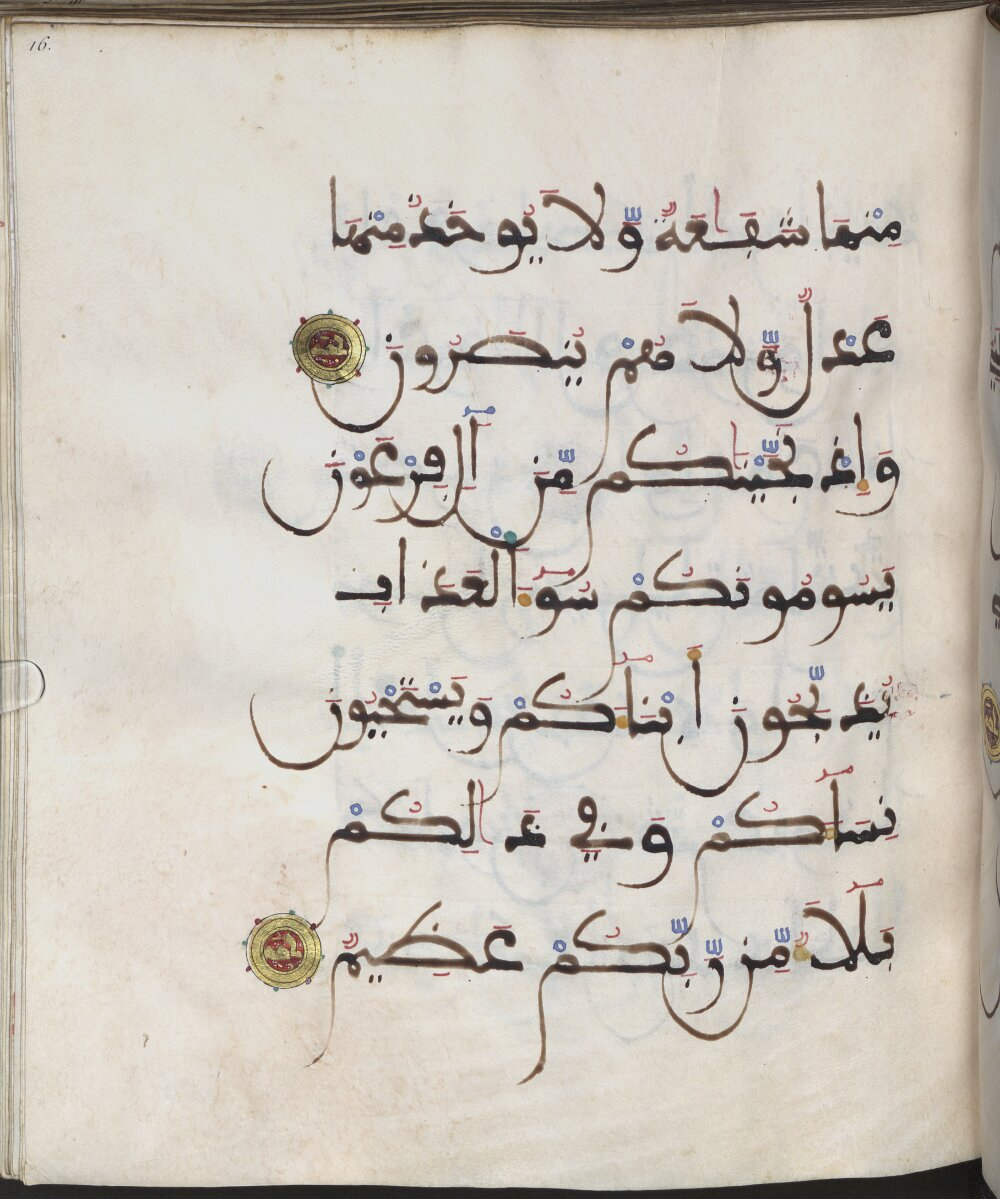 16.
مِنْهَا شَفَٰعَةٌ وَّلَا يُوخَذُ مِنْهَا
عَدْلٌ وَّلَا هُمْ يُنصَرُونَ
وَإِذْ نَجَّيْنَٰكُم مِّنْ آلِ فِرْعَوْنَ
يَسُومُونَكُمْ سُوٓءَ الْعَذَابِ
يُذَبِّحُونَ أَبْنَآءَكُمْ وَيَسْتَحْيُونَ
نِسَآءَكُمْ وَفِي ذَٰلِكُم
بَلَآءٌ مِّن رَّبِّكُمْ عَظِيمٌ